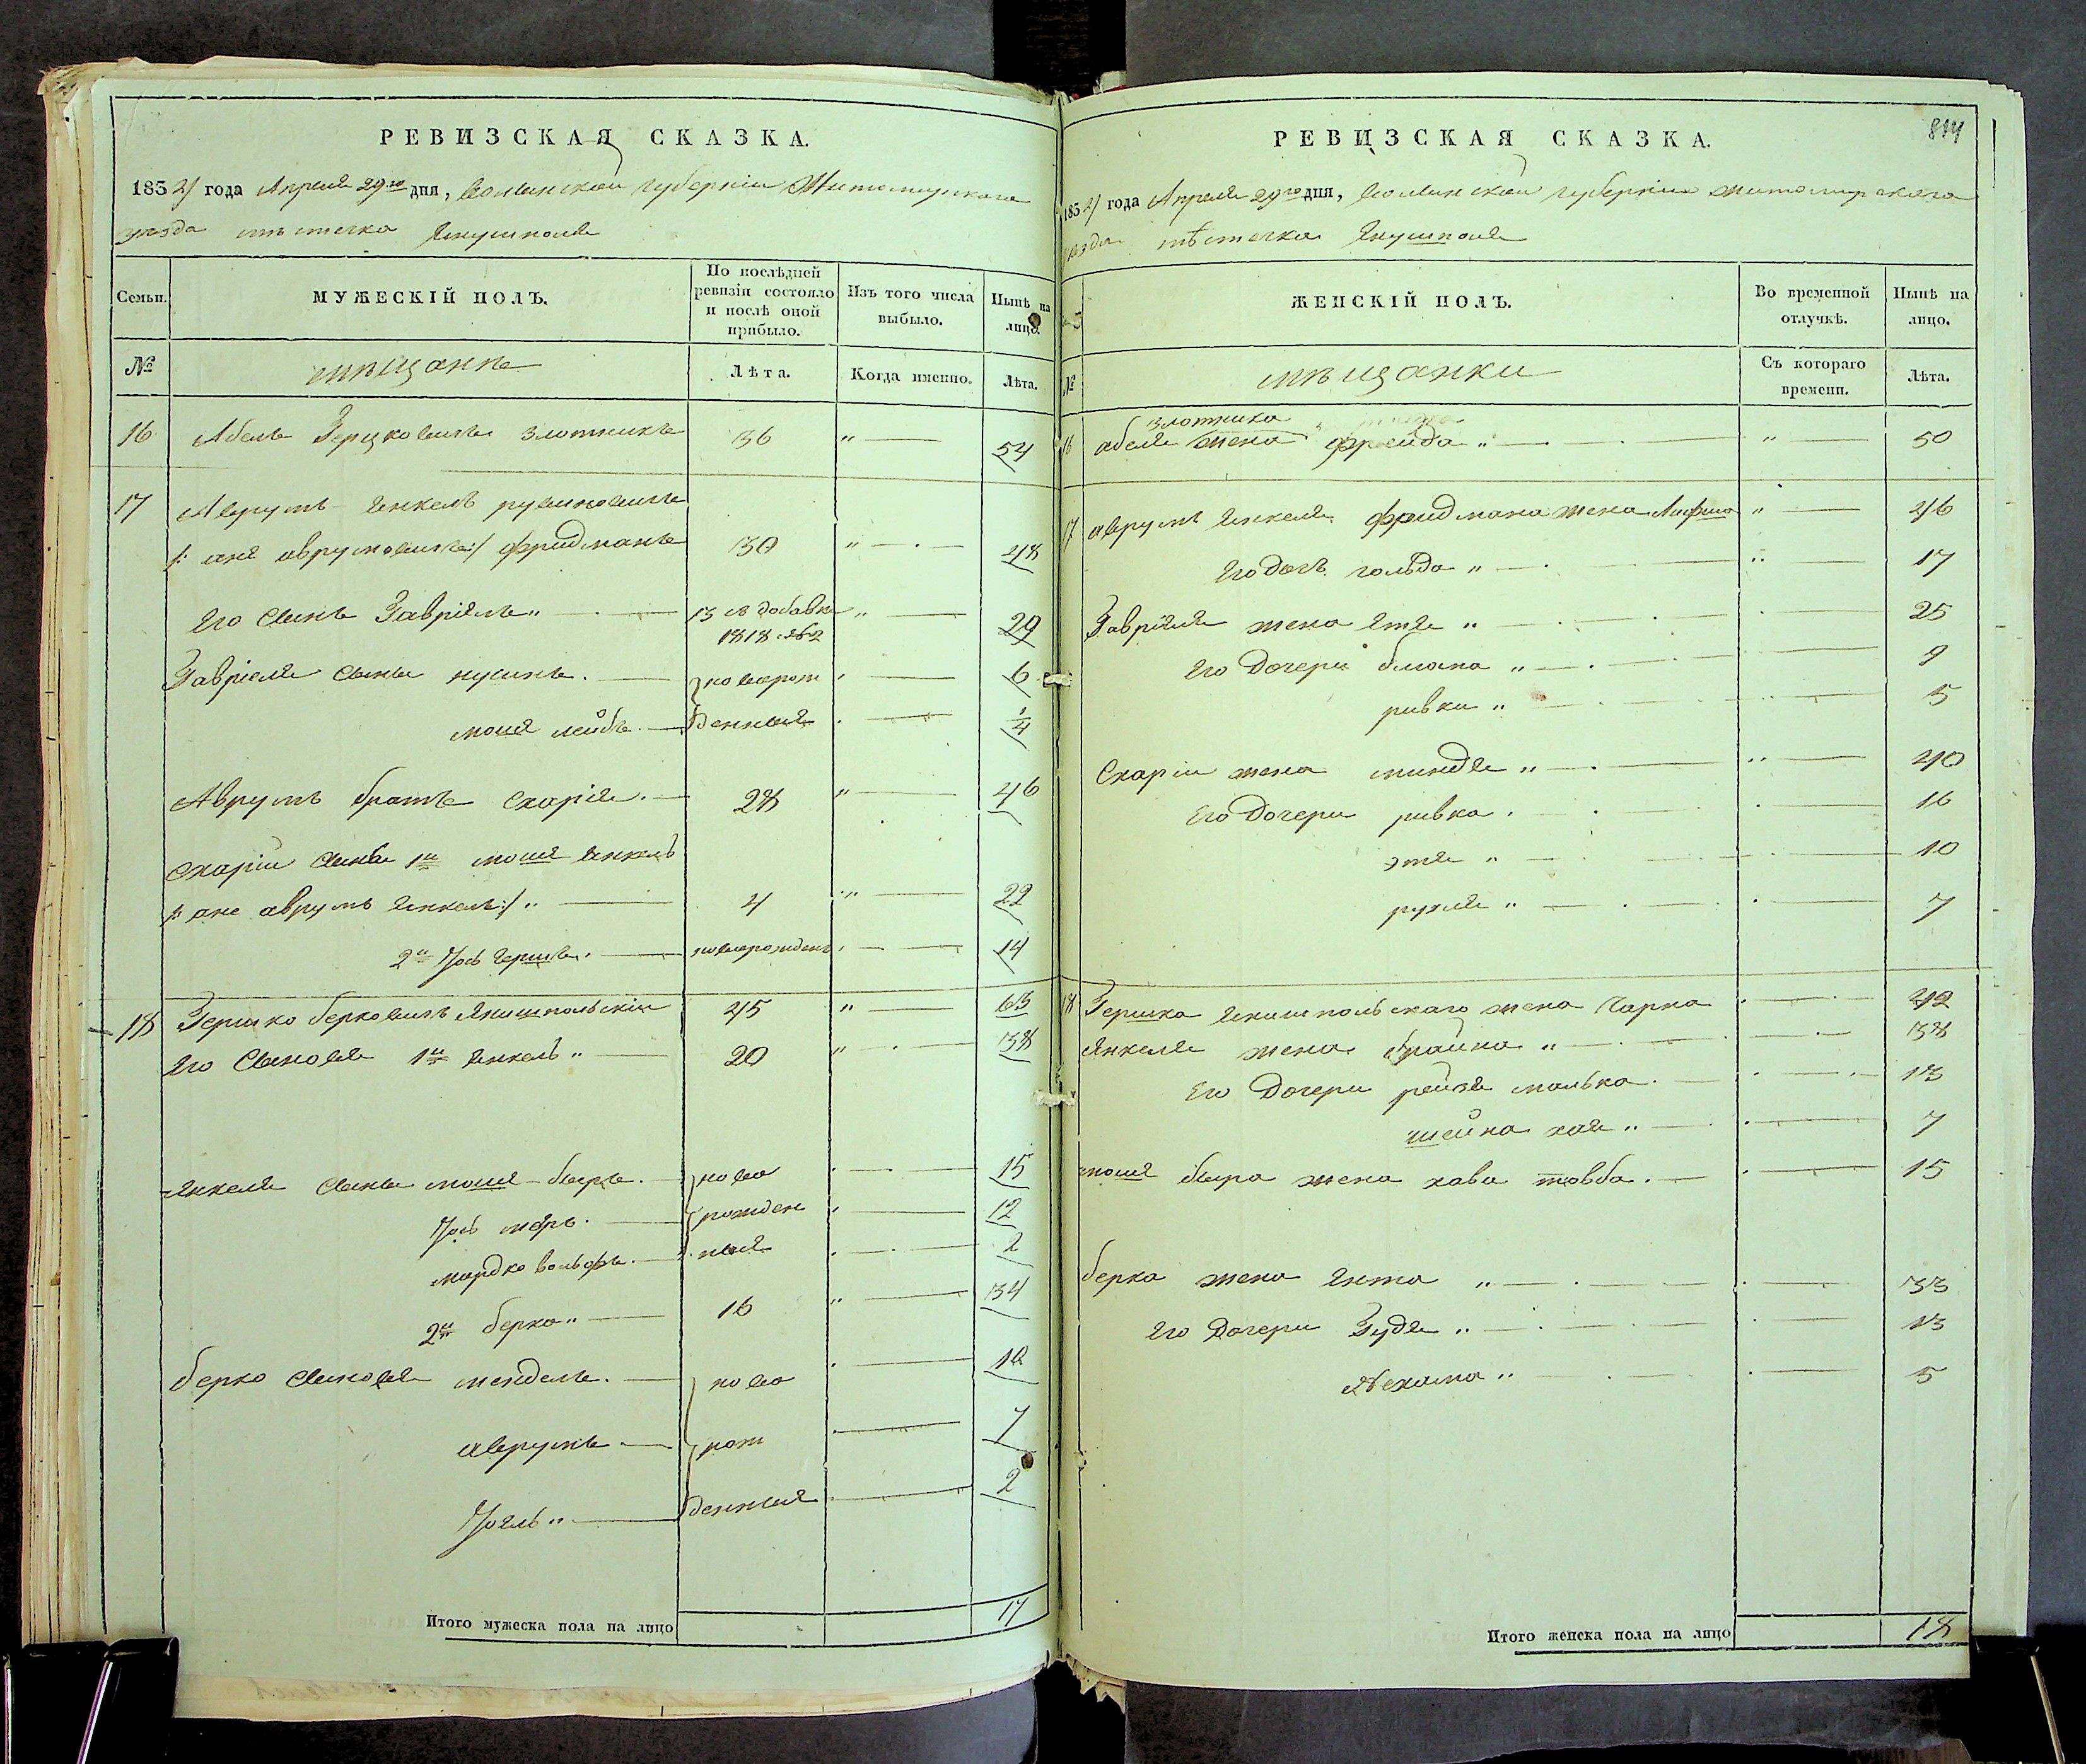 РЕВИЗСКАЯ СКАЗКА.
1834 года Апреля 29го дня, Волынской губернии Житомирского
уезда мѣстечка Янушполя
Семьи. МУЖЕСКІЙ ПОЛЪ. По послѣдней ревизіи состояло и послѣ оной прибыло. Изъ того числа выбыло. Нынѣ на лицо.
№ мѣщане Лѣта. Когда именно. Лѣта.
16 Абель Герцковичъ Злотникъ 36 " 54
17 Аврумъ Янкель
/: Аврумовичъ :/ Фридманъ 30 " 48
Его Сынъ Гавріель " 13 " 29
1818
Гавріеля Сыны Нусинъ. новорож 6
Мошя Лейбъ. денныя 1/4
Аврумъ братъ Схарія. 28 " 46
Схаріи Сыны 1й Мошя Янкель
/: ане Аврумъ Янкель :/ " 4 " 22
2й Іось Гершъ. новорожден 14
18 Гершко Берковичъ Янишпольскій 45 " 63
Его Сыновья 1й Янкель " 20 " 38
Янкеля Сыны Мошя-Беръ. ново 15
Іось Меръ. рожден 12
Мордко Вольфъ. ныя 2
2й Берко " 16 " 34
Берко Сыновья Мендель. ново 10
Аврумъ рож 7
Іоель " денныя 2
Итого мужеска пола на лицо 17
РЕВИЗСКАЯ СКАЗКА. 814
1834 года Апреля 29го дня, Волынской губернии Житомирского
уезда мѣстечка Янушполя
ЖЕНСКІЙ ПОЛЪ. Во временной отлучкѣ. Нынѣ на лицо.
№ мѣщанки Съ котораго времени. Лѣта.
Злотника
16 Абеля жена Фрейда " " 50
17 Аврумъ Янкеля Фридмана жена " 46
Его дочь Гольда " " 17
Гавріеля жена Етя " 25
Его Дочери блюма " 9
ривка " 5
Схаріи жена миндля " " 40
Его Дочери ривка. 16
этя " 10
рухля " 7
18 Гершка Янишпольскаго жена Чарна 42
Янкеля жена брайна " 38
Его Дочери рейзя малька. 13
шейна хая " 7
Мошя бера жена хава товба. 15
Берка жена Ента " 33
Его Дочери Гудя " 13
Нехама " 5
Итого женска пола на лицо 18